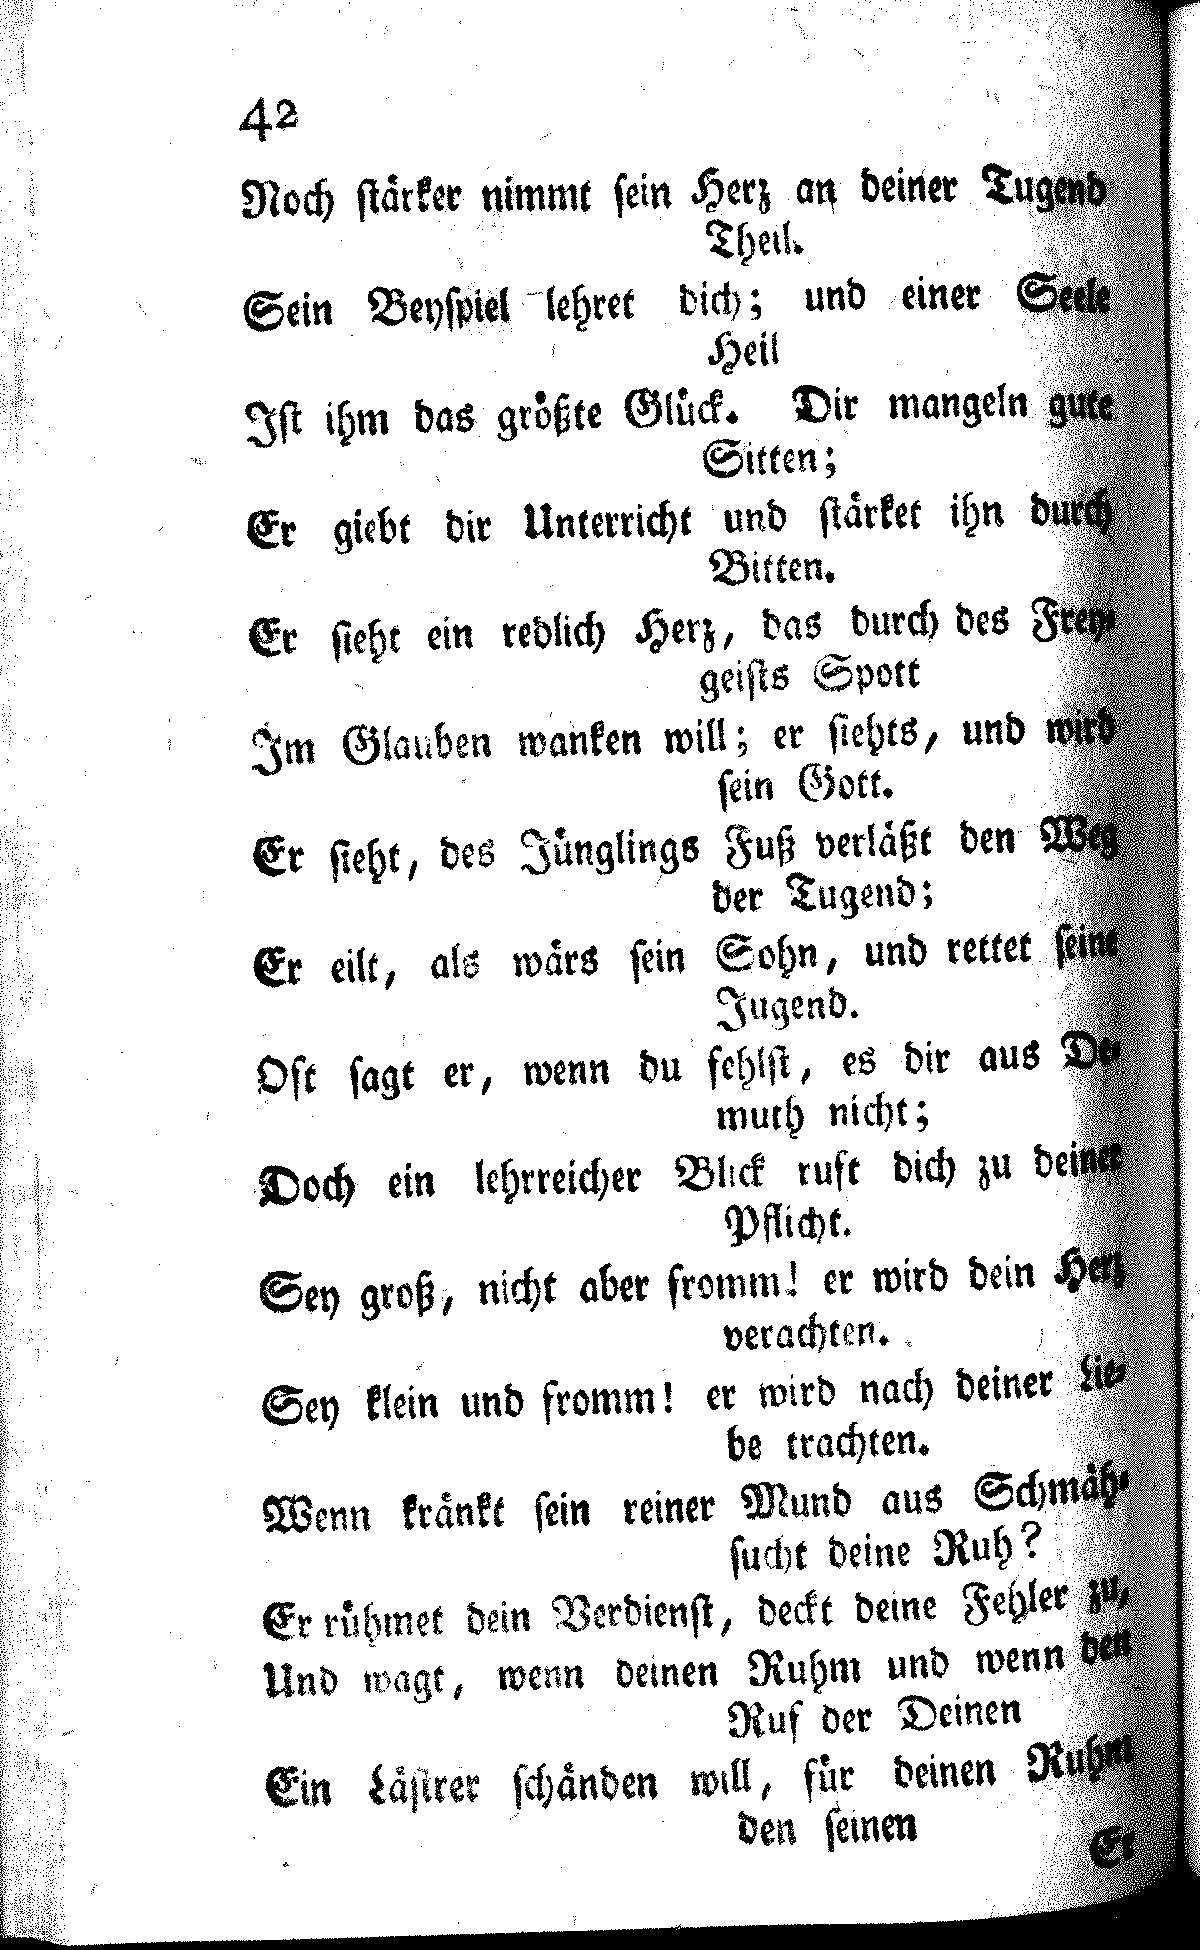 42
Noch stärker nimmt sein Herz an deiner Tugend
Theil.
Sein Beyspiel lehret dich; und einer Seele
Heil
Ist ihm das größte Glück. Dir mangeln gute
Sitten;
Er giebt dir Unterricht und stärket ihn durch
Bitten.
Er sieht ein redlich Herz, das durch des Frey-
geists Spott
Im Glauben wanken will; er siehts, und wird
sein Gott.
Er sieht, des Jünglings Fuß verläßt den Weg
der Tugend;
Er eilt, als wärs sein Sohn, und rettet seine
Jugend.
Oft sagt er, wenn du fehlst, es dir aus De-
muth nicht;
Doch ein lehrreicher Blick ruft dich zu deiner
Pflicht.
Sey groß, nicht aber fromm! er wird dein Herz
verachten.
Sey klein und fromm! er wird nach deiner Lie-
be trachten.
Wenn kränkt sein reiner Mund aus Schmäh-
sucht deine Ruh?
Er rühmet dein Verdienst, deckt deine Fehler zu,
Und wagt, wenn deinen Ruhm und wenn den
Ruf der Deinen
Ein Lästrer schänden will, für deinen Ruhm
den seinen
Er